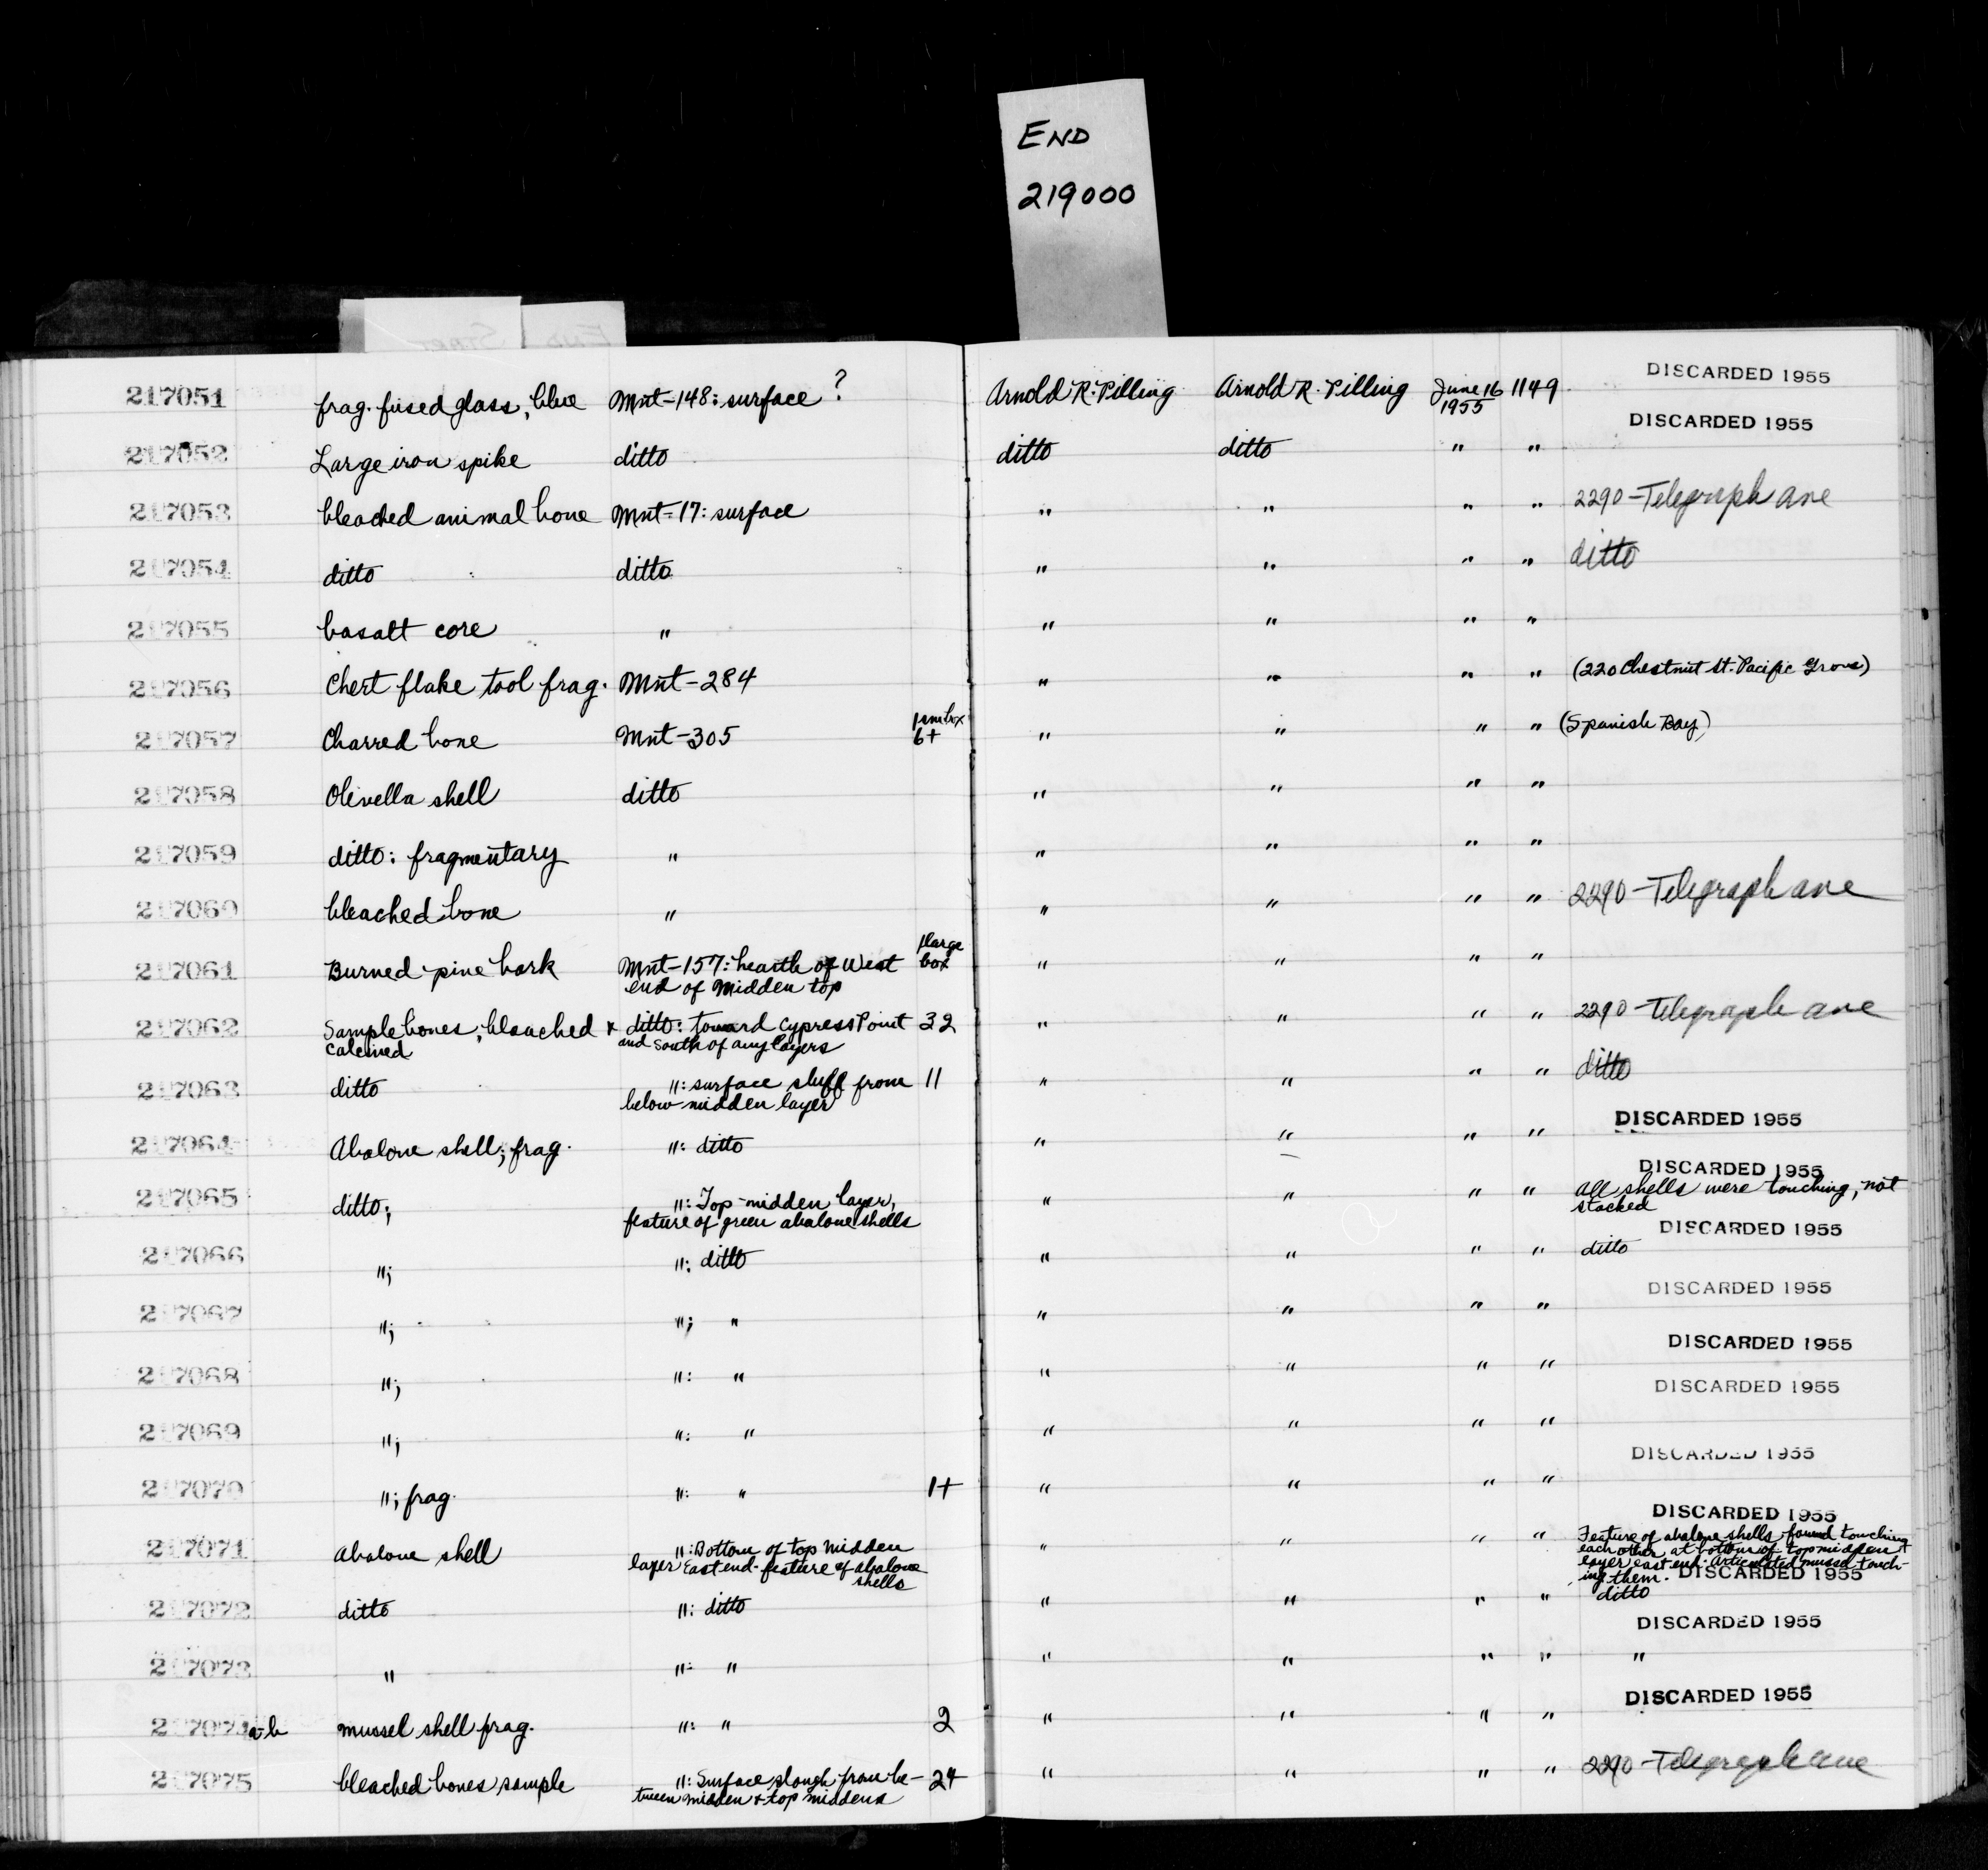 END
219000
217051 frag. fused glass, blue Mnt-148: surface ? Arnold R. Pilling Arnold R. Pilling June 16 1955 1149 DISCARDED 1955
217052 Large iron spike ditto ditto ditto " " DISCARDED 1955
217053 bleached animal bone Mnt-17: surface " " " " 2290-Telegraph ave
217054 ditto ditto " " " " ditto
217055 basalt core " " " " "
217056 Chert flake tool frag. Mnt-284 " " " " (220 Chestnut St. Pacific Grove)
217057 Charred bone Mnt-305 1 sm box 6+ " " " " (Spanish Bay)
217058 Olivella shell ditto " " " "
217059 ditto: fragmentary " " " " "
217060 bleached bone " " " " " 2290-Telegraph ave
217061 Burned pine bark Mnt-157: hearth of West 1 large box " " " "
end of Midden top
217062 Sample bones, bleached + ditto: toward Cypress Point 32 " " " " 2290-Telegraph ave
calcined and South of any layers
217063 ditto ": surface stuff from 11 " " " " ditto
below midden layer
217064 Abalone shell; frag. ": ditto " " " " DISCARDED 1955
217065 ditto; ": Top-midden layer, " " " " DISCARDED 1955
feature of green abalone shells All shells were touching, not
stacked
217066 "; ": ditto " " " " ditto DISCARDED 1955
217067 "; "; " " " " " DISCARDED 1955
217068 "; ": " " " " " DISCARDED 1955
217069 "; ": " " " " " DISCARDED 1955
217070 "; frag. ": " 1+ " " " " DISCARDED 1955
217071 Abalone shell ": Bottom of top midden " " " " DISCARDED 1955
layer East end. feature of abalone
shells
Feature of abalone shells found touching
each other at bottom of top midden
layer east end. Articulated mussel touch-
ing them.
217072 ditto ": ditto " " " " ditto DISCARDED 1955
217073 " ": " " " " " " DISCARDED 1955
217074 a-b mussel shell frag. ": " 2 " " " " DISCARDED 1955
217075 bleached bones sample ": Surface slough from be- 24 " " " " 2290-Telegraph ave
tween midden + top middens